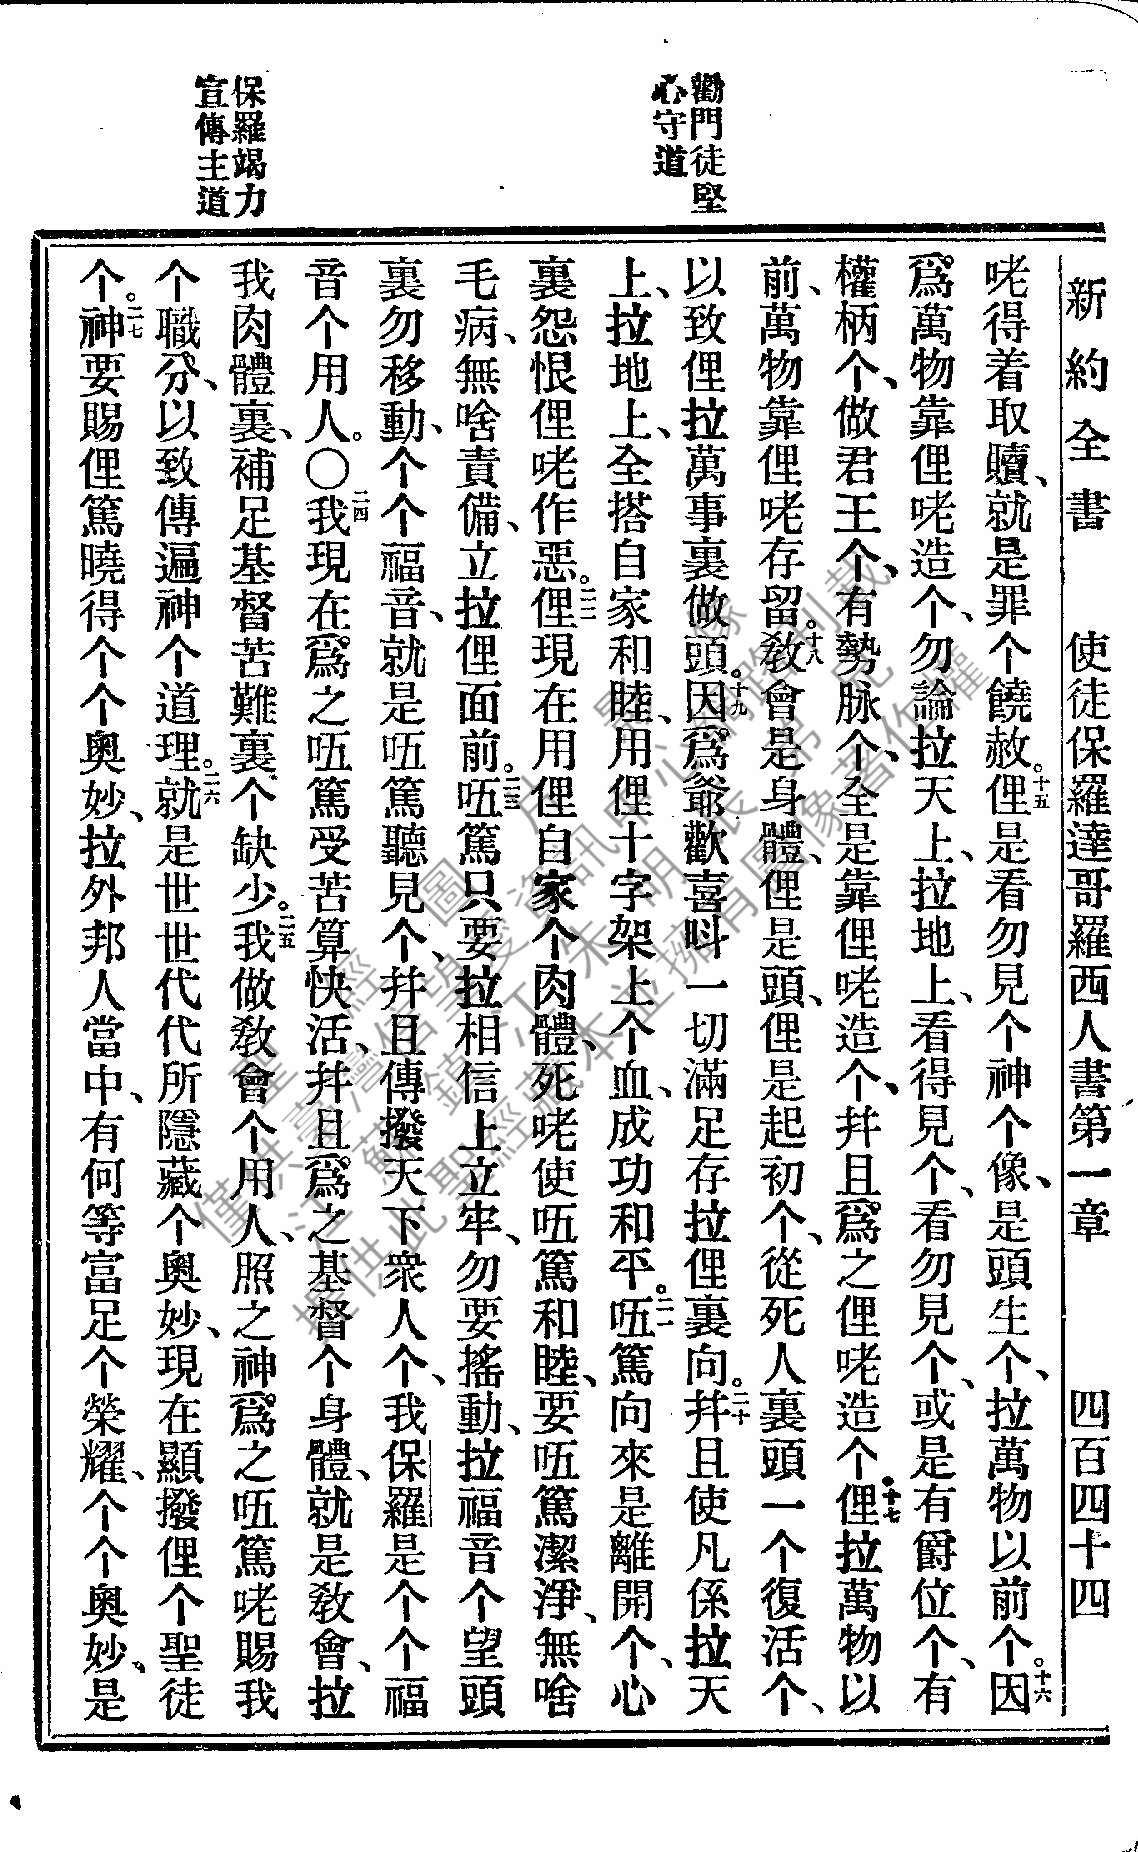 新約全書 使徒保羅達哥羅西人書第一章 四百四十四
勸門徒堅
心守道
保羅竭力
宣傳主道
咾得着取贖、就是罪个饒赦。十五俚是看勿見个神个像、是頭生个、拉萬物以前个。十六因
爲萬物靠俚咾造个、勿論拉天上、拉地上、看得見个、看勿見个、或是有爵位个、有
權柄个、做君王个、有勢脉个、全是靠俚咾造个、幷且爲之俚咾造个。十七俚拉萬物以
前、萬物靠俚咾存留。十八教會是身體、俚是頭、俚是起初个、從死人裏頭一个復活个、
以致俚拉萬事裏做頭。十九因爲爺歡喜呌一切滿足存拉俚裏向。二十幷且使凡係拉天
上、拉地上、全搭自家和睦、用俚十字架上个血、成功和平。二一㑚篤向來是離開个、心
裏怨恨俚咾作惡。二二俚現在用俚自家个肉體、死咾使㑚篤和睦、要㑚篤潔淨、無啥
毛病、無啥責備、立拉俚面前。二三㑚篤只要拉相信上立牢、勿要搖動、拉福音个望頭
裏勿移動、个个福音、就是㑚篤聽見个、幷且傳撥天下衆人个、我保羅是个个福
音个用人。○二四我現在爲之㑚篤受苦算快活、幷且爲之基督个身體、就是教會、拉
我肉體裏、補足基督苦難裏个缺少。二五我做教會个用人、照之神爲之㑚篤咾賜我
个職分、以致傳遍神个道理。二六就是世世代代所隱藏个奥妙、現在顯撥俚个聖徒
个。二七神要賜俚篤曉得个个奥妙、拉外邦人當中、有何等富足个榮耀、个个奥妙、是